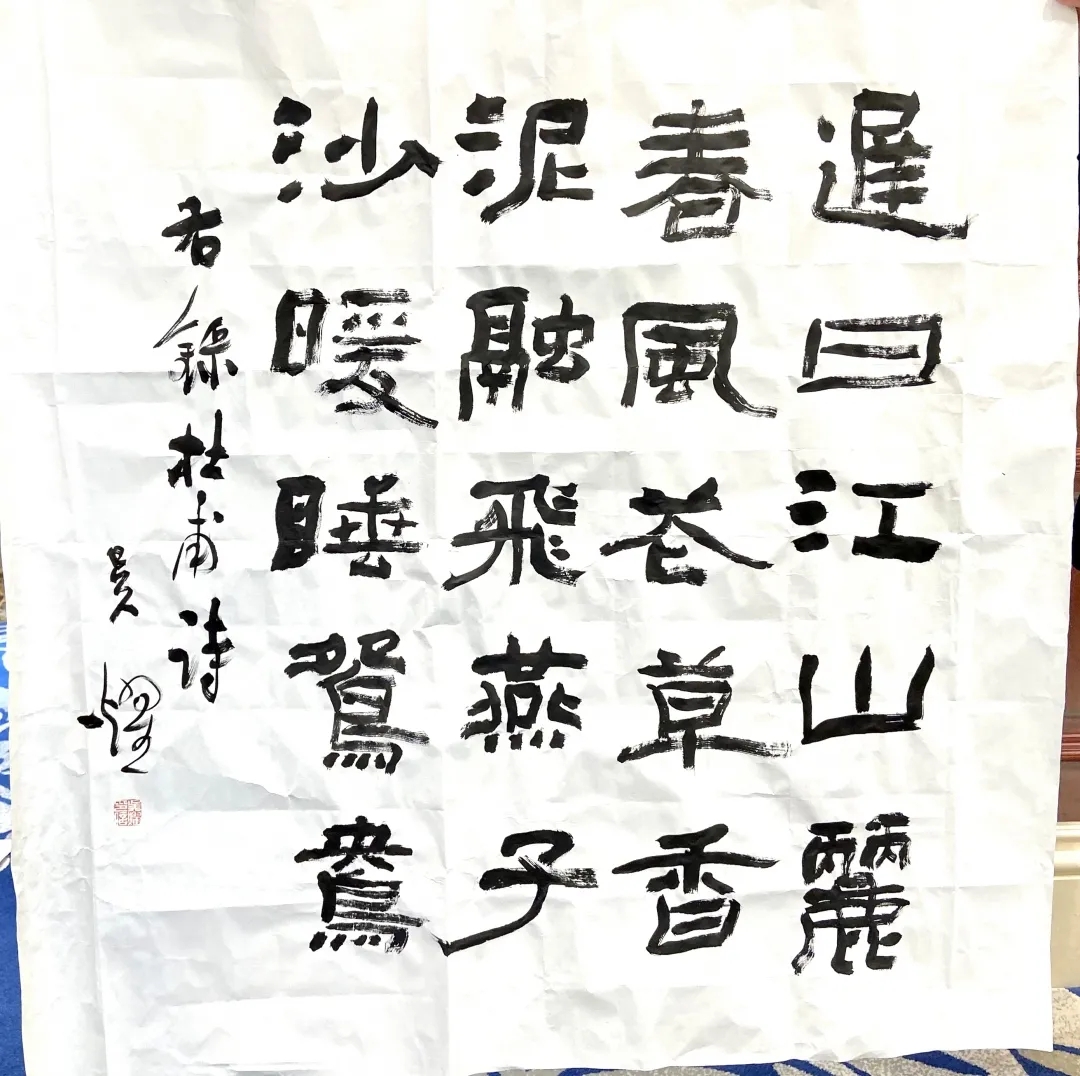 遲日江山麗
春風花草香
泥融飛燕子
沙暖睡鴛鴦
右錄杜甫诗
吴